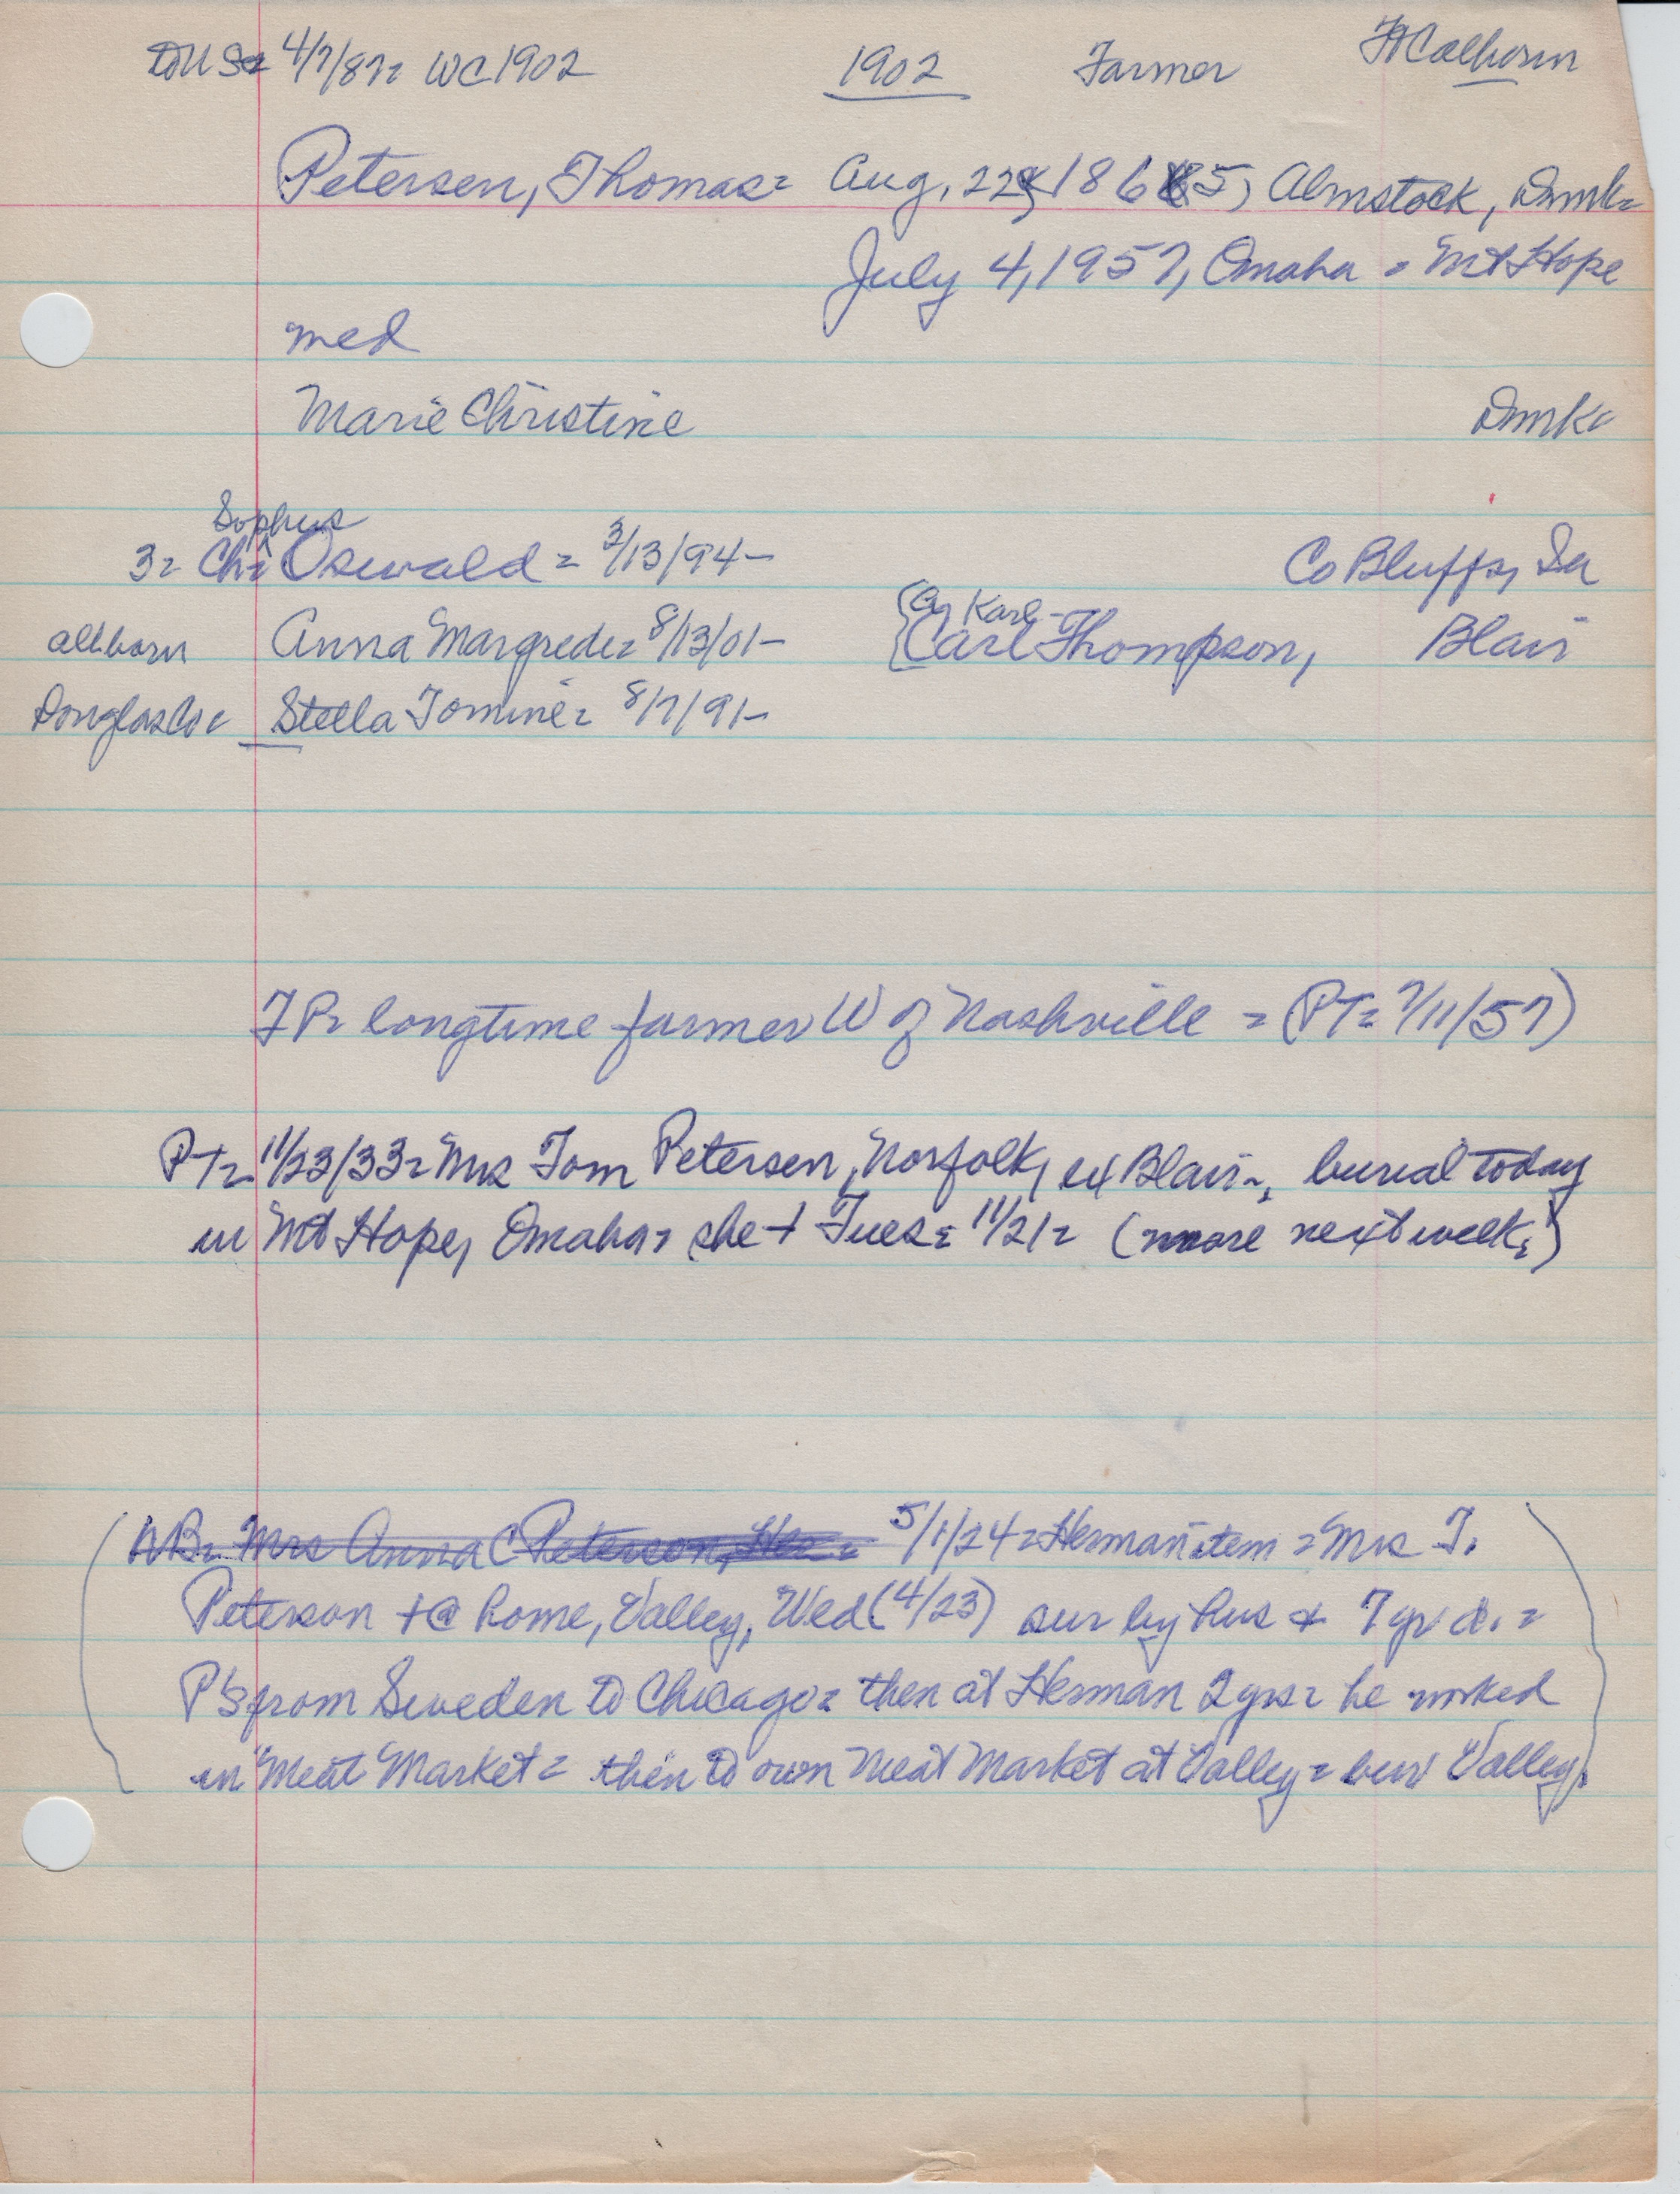 to US= 4/7/87= WC1902 1902 Farmer Ft Calhoun
Petersen, Thomas= Aug, 22, 1865, Almstock, Dnmk=
July 4, 1957, Omaha = Mt Hope
med
Marie Christine Dnmk=
Sophus
3= Ch= Oswald = 3/13/94- Co Bluffs, Ia
all born Anna Margrede= 8/13/01- {Cy Karl-
Carl Thompson, Blair
Douglas Co= Stella Tomine= 8/7/91-
TP= longtime farmer W of Nashville = (PT= 7/11/57)
PT= 11/23/33= Mrs Tom Petersen, Norfolk, ex Blair-, burial today
in Mt Hope, Omaha= she + Tues= 11/21= (more next week=)
(NB= Mrs Anna C Peterson, Her= 5/1/24= Herman item = Mrs T.
Peterson +@ home, Valley, Wed (4/23) sur by hus & 7 yr d. =
P's from Sweden to Chicago= then at Herman 2 yrs= he worked
in Meat Market= then to own Meat Market at Valley= bur Valley)